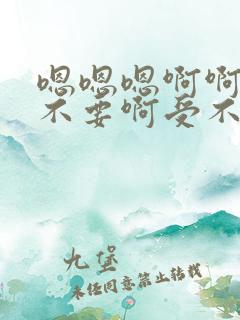 嗯嗯嗯啊啊
不要啊受不
九堡
未经同意禁止转载